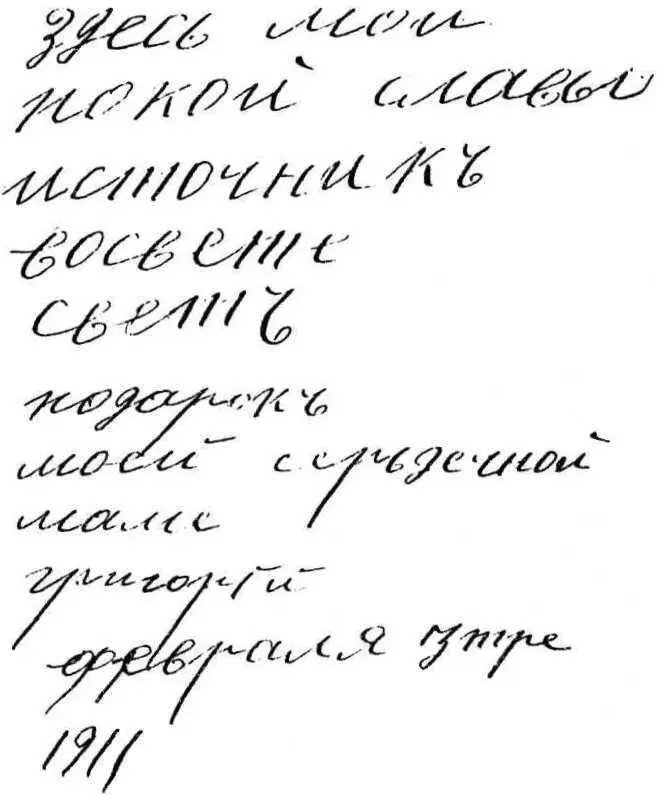 здесь мои
покой славы
источникъ
восвете
светъ
подарокъ
моей серьдечной
маме
григорiй
февраля 3тре
1911